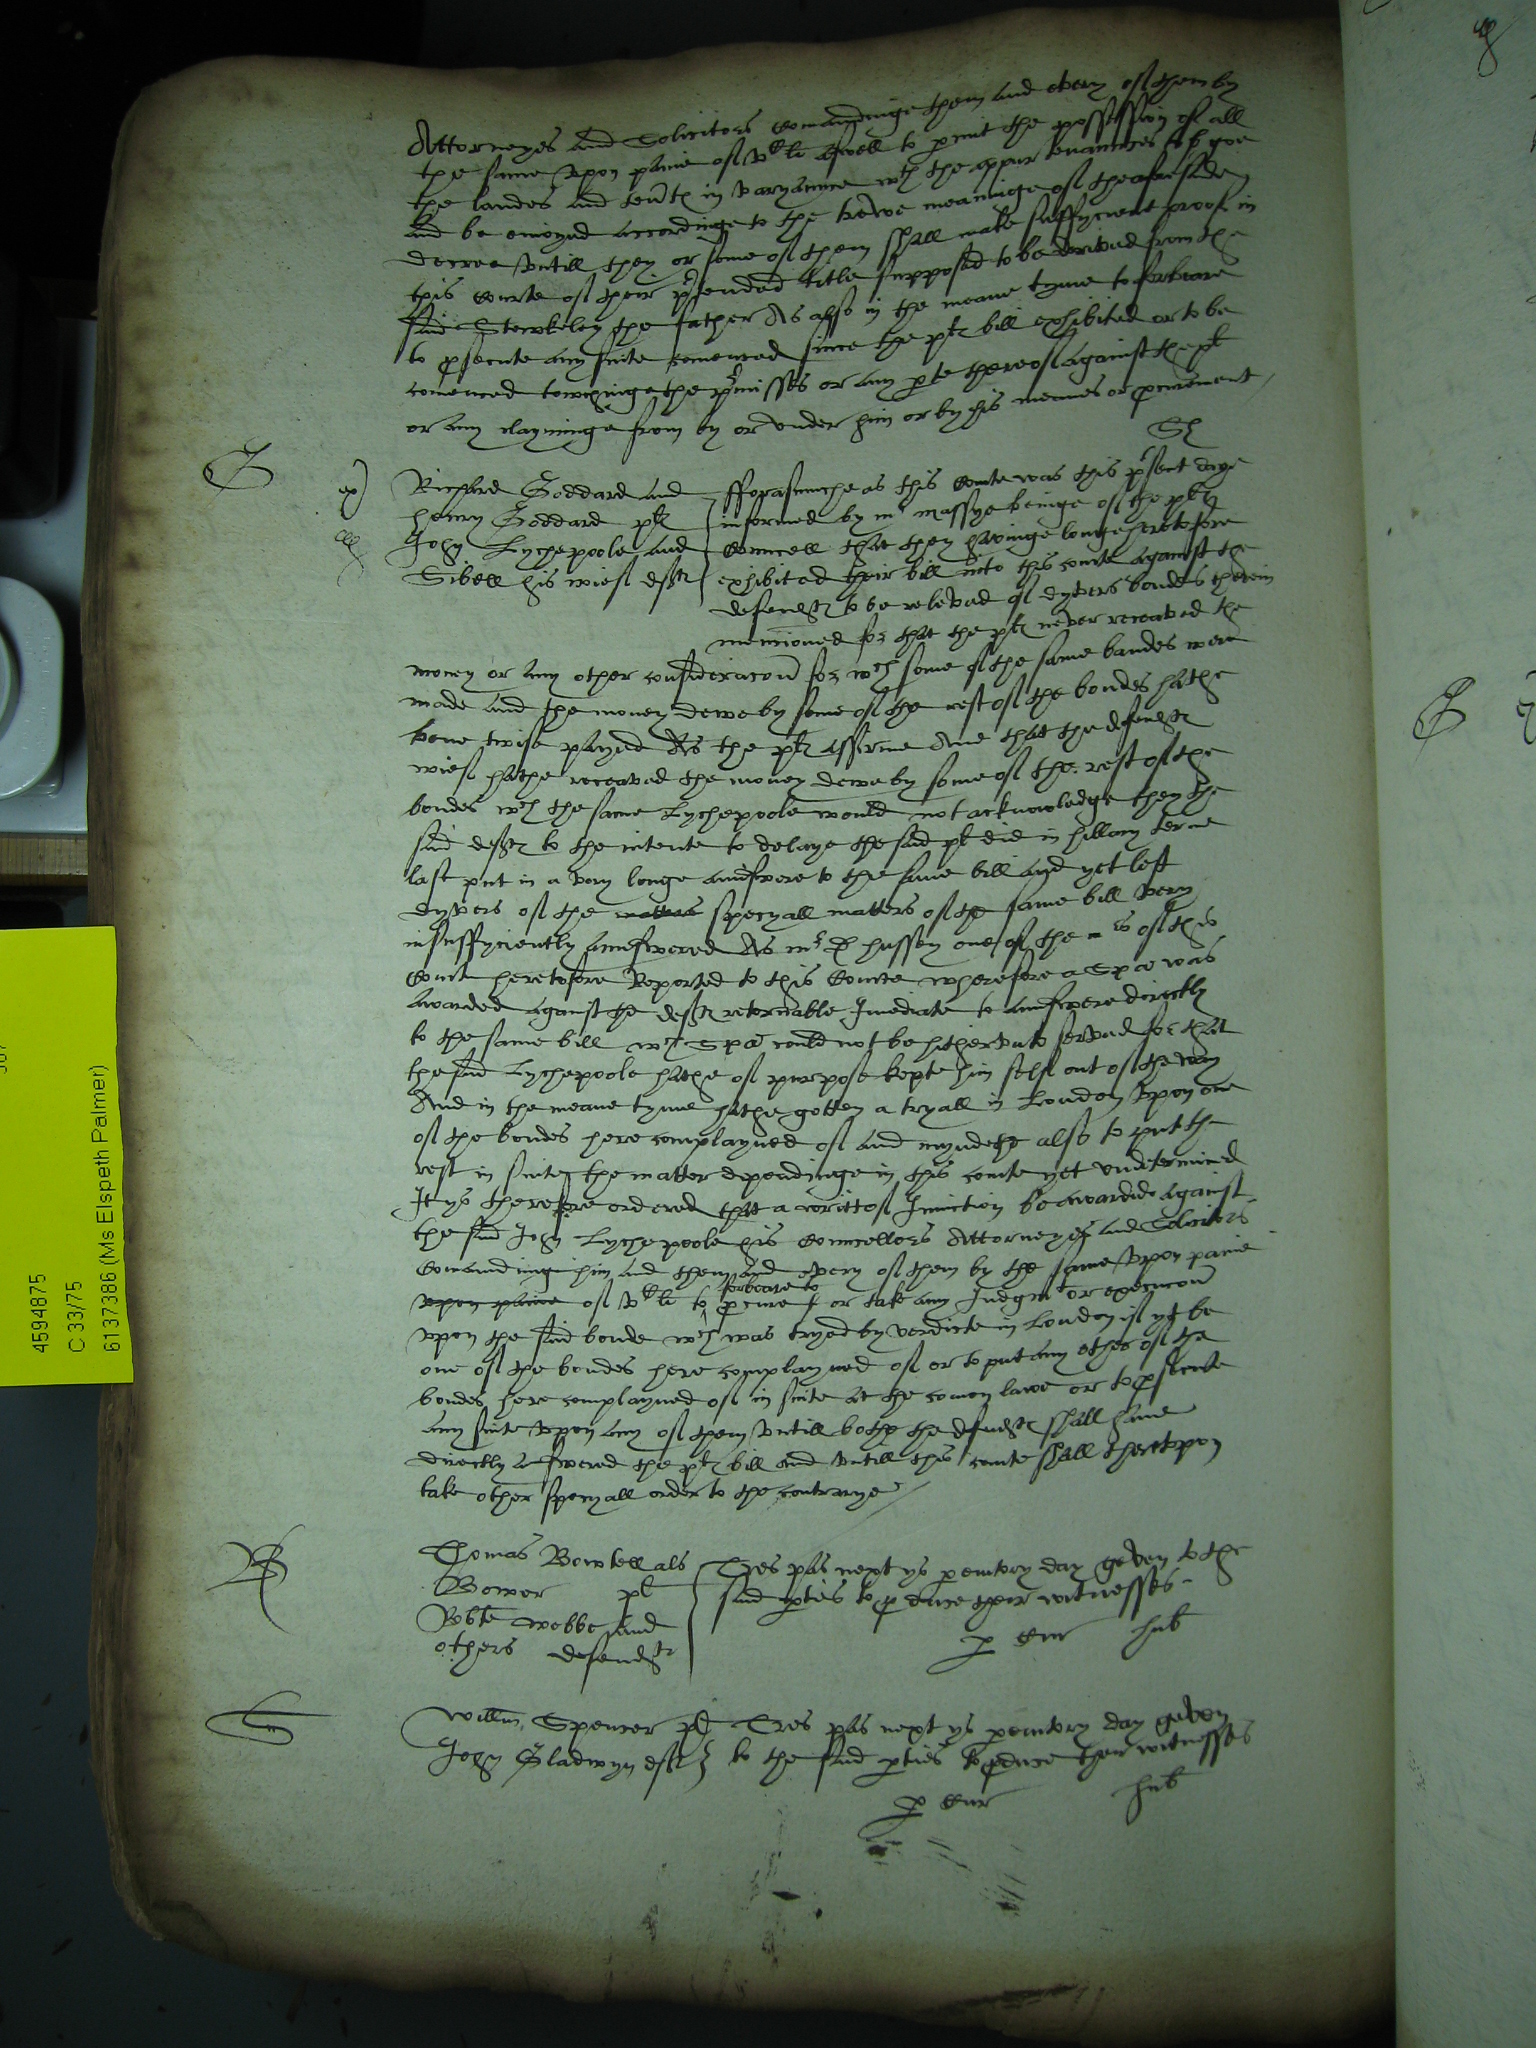 Attorneyes and Solicitors Comaundinge them and every of them by
the same vpon paine of vC li aswell to permit the possession of all
the landes and tents in varyaunce wth the appurtenaunces to goe
and be enioyed accordinge to the trewe meaninge of the aforesaide
decree vntill they or some of them shall make suffycient proof in
this Courte of their pretended title supposed to be derived from the
said Stewkeley the father As also in the meane tyme to forbeare
to prosecute any suite comenced since the plt bill exhibited or to be
comenced towchinge the premisses or any parte thereof against the plt
or any clayminge from by or vnder him or by his meanes or procurement
G
Richard Goddard and
henry Goddard plts
John Lychepoole and
Sibell his wief defts
fforasmuche as this Courte was this present daye
informed by mr Massye beinge of the plts
Councell that they havinge longe heretofore
exhibited their bill into this courte against the
defendts to be releved of dyvers bondes therein
mencioned for that the plts never receaved the
money or any other consideracon for wch some of the same bandes were
made and the money dewe by some of the rest of the bondes hathe
bene twise payed As the plts affirme And that the defendts
wief hathe receaved the money dewe by some of the rest of the
bondes wch the same Lychepoole would not acknowledge they the
said defts to the intente to delaye the said plt did in hillary terme
last put in a very longe aunswere to the same bill and yet left
dyvers of the matters specyall matters of the same bill very
insuffyciently aunswered As mr D hussey one of the mrs of this
Court heretofore Reported to this Courte wherefore a Spa was
awarded against the defts retornable Imediate to aunswere directly
to the same bill wch Spa could not be hithervnto served for that
the said Lychepoole hathe of purpose kepte him self out of the way
And in the meane tyme hathe gotten a tryall in London vpon one
of the bondes here complayned of and myndethe also to put the
rest in suite the matter dependinge in this courte yet vndetermined
It ys therefore ordered that a writt of Iniunction be awarded against
the said John Lychepoole his Councellors Attorneyes and Solicitors
Comaundinge him and them and every of them by the same vpon paine
vpon paine of vC li to forbeare to procure or take any Iudgmt or execucon
vpon the said bonde wch was tryed by verdicte in London if yt be
one of the bondes here complayned of or to put any other of the
bondes here complayned of in suite at the comon lawe or to prosecute
any suite vpon any of them vntill bothe the defendts shall have
directly aunswered the plts bill and vntill this courte shall therevpon
take other specyall order to the contrarye
B
Thomas Bowtell als
Bower plt
Robte Webbe and
others defendts
Tres pas next ys peremtory day geven to the
said parties to produce their witnesses
per Cur hub
S
Willm Spencer plt
John Gladwyn deft
Tres pas next ys peremtory day geven
to the said parties to produce their witnesses
per Cur hub
4594875
C 33/75
6137386 (Ms Elspeth Palmer)